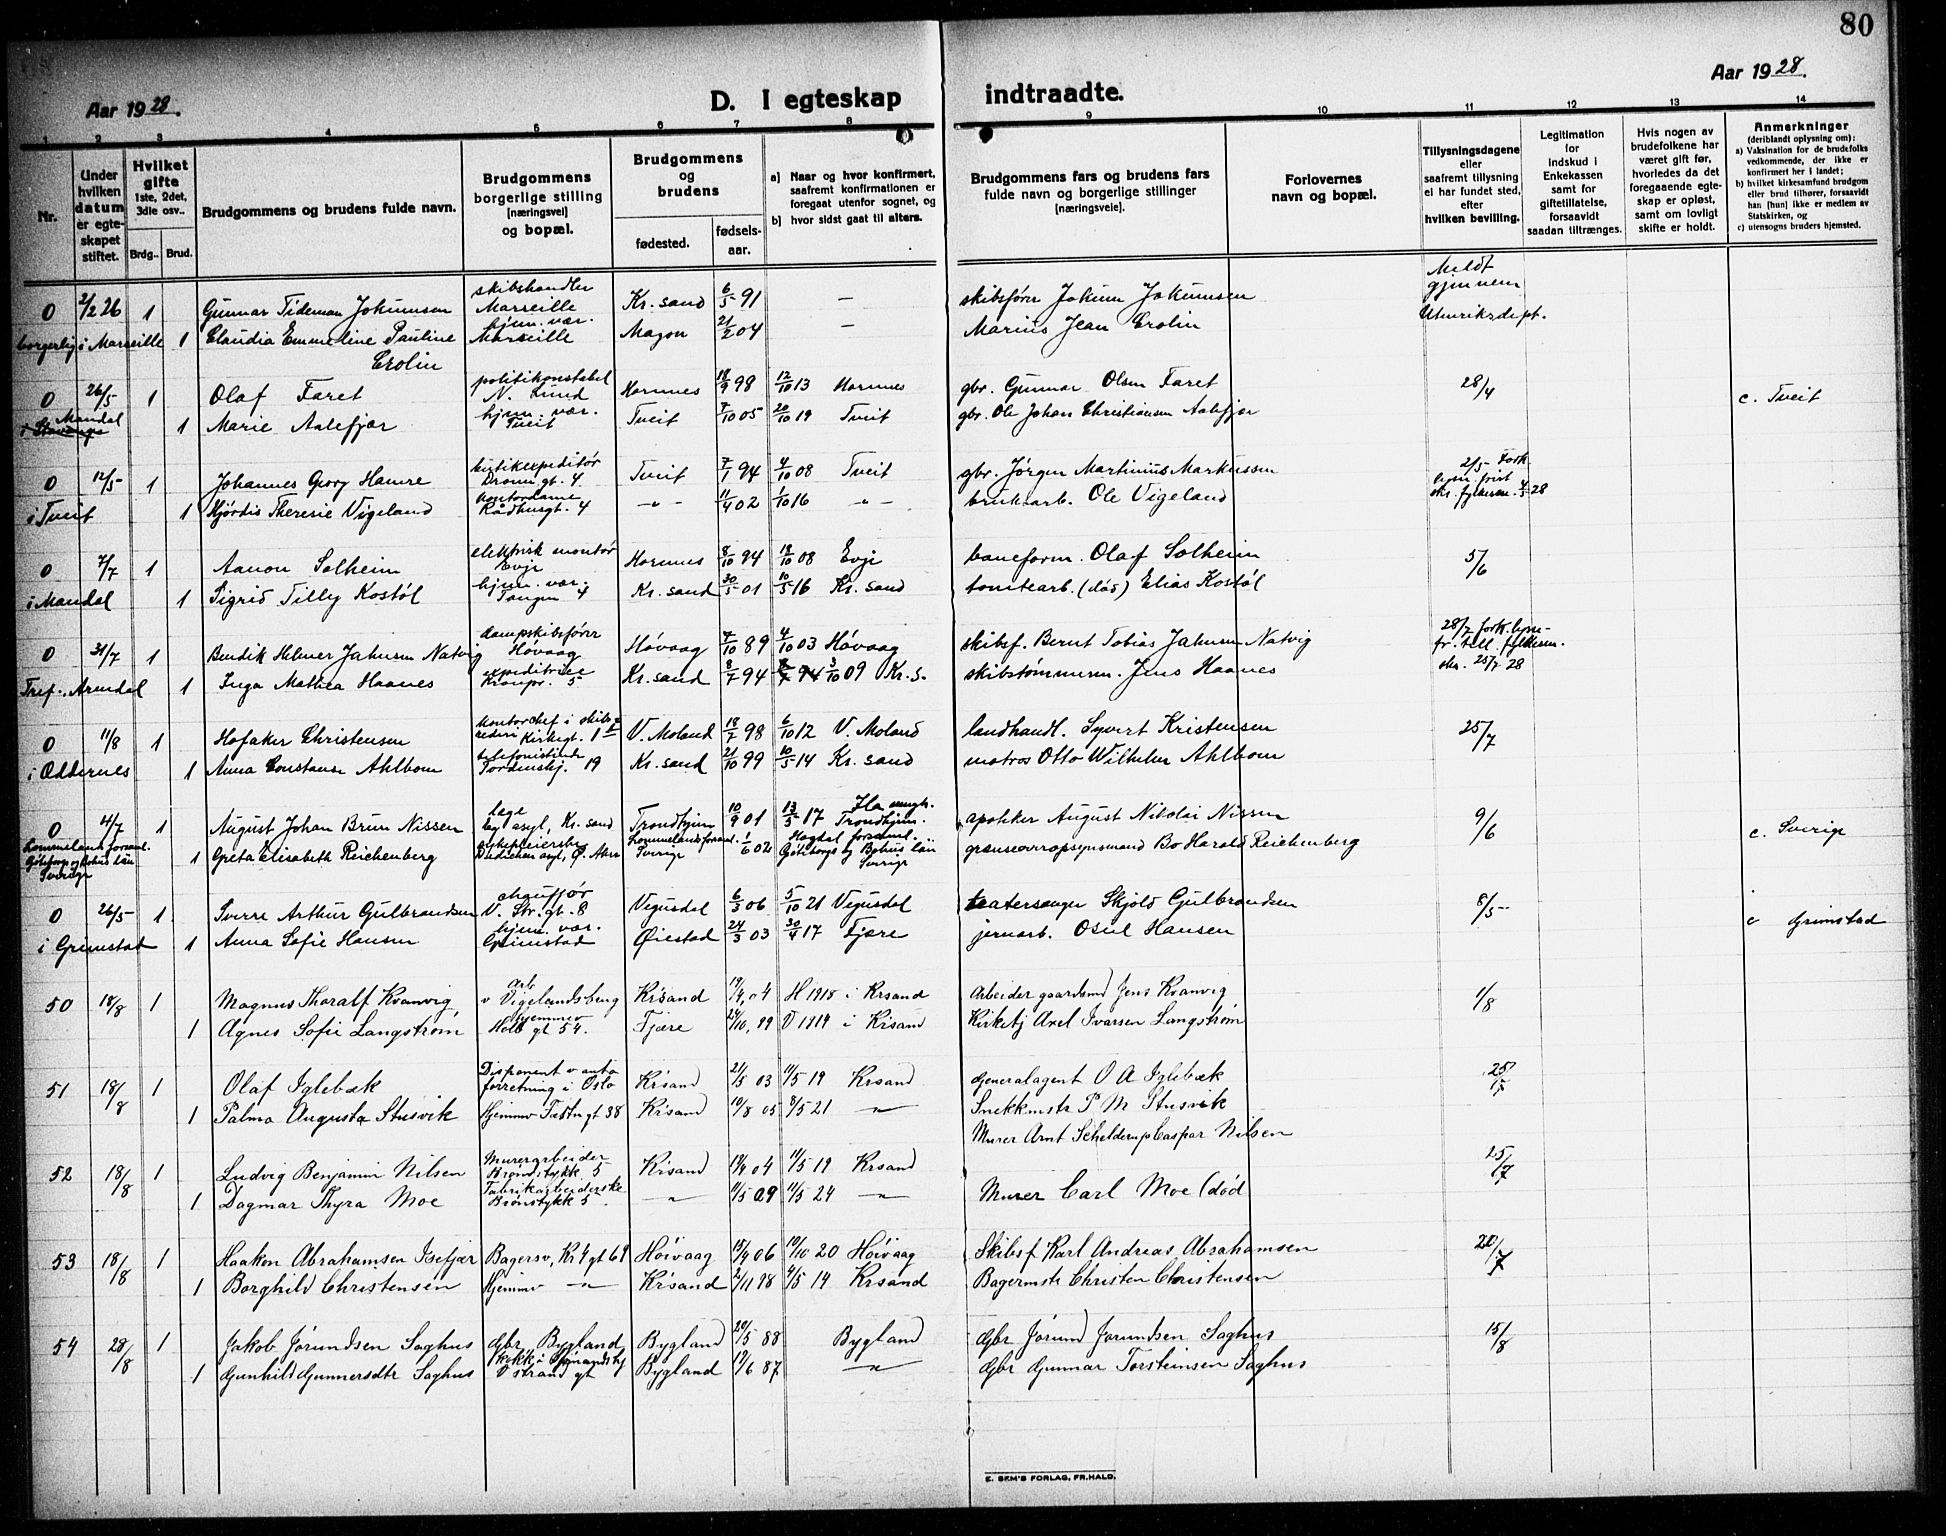 80
Aar 1928.
D. I egteskap indtraadte.
Aar 1928.
1 2 3 4 5 6 7 8 9 10 11 12 13 14
Nr.
Under hvilken datum er egteskapet stiftet.
Hvilket gifte 1ste, 2det, 3die osv..
Brdg.. Brud.
Brudgommens og brudens fulde navn.
Brudgommens borgerlige stilling [næringsvei] og bopæl.
Brudgommens og brudens
fødested. fødselsaar.
a) Naar og hvor konfirmert, saafremt konfirmationen er foregaat utenfor sognet, og
b) hvor sidst gaat til alters.
Brudgommens fars og brudens fars fulde navn og borgerlige stillinger [næringsveie].
Forlovernes navn og bopæl.
Tillysningsdagene eller saafremt tillysning ei har fundet sted, efter hvilken bevilling.
Legitimation for indskud i Enkekassen samt for giftetillatelse, forsaavidt saadan tiltrænges.
Hvis nogen av brudefolkene har været gift før, hvorledes da det foregaaende egteskap er opløst, samt om lovligt skifte er holdt.
Anmerkninger (deriblandt oplysning om):
a) Vaksination for de brudefolks vedkommende, der ikke er konfirmert her i landet;
b) hvilket kirkesamfund brudgom eller brud tilhører, forsaavidt han (hun) ikke er medlem av Statskirken, og
c) utensogns bruders hjemsted.
0 2/2 26 1 Gunnar Tideman Jokumsen skibshandler Marseille Kr. sand 6/5 91 — skibsfører Jokum Jokumsen Meldt gjennem Utenriksdept.
borgerlig i Marseille 1 Claudia Emmeline Pauline Crolin hjem. vær. Marseille Magon 21/2 04 — Marius Jean Crolin
0 26/5 1 Olaf Faret politikonstabel N. Lund Hornnes 18/9 98 12/10 13 Hornnes gbr. Gunnar Olsen Faret 28/4
Mandal 1 Marie Aalefjær hjem. vær. Tveit Tveit 7/10 05 20/10 19 Tveit gbr. Ole Johan Christiansen Aalefjær c. Tveit
0 12/5 1 Johannes Georg Hamre butikexpeditør Dronn. gt. 4 Tveit 7/1 94 4/10 08 Tveit gbr. Jørgen Martinius Markussen 2/5
i Tveit 1 Hjørdis Theresie Vigeland kontordame Rådhusgt. 4 -"- 11/4 02 1/10 16 -"- bruksarb. Ole Vigeland
0 7/7 1 Aanon Solheim elektrisk montør Evje Hornnes 8/10 94 18/10 08 Evje baneform. Olaf Solheim 5/6
i Mandal 1 Sigrid Tilly Kostøl hjem. vær. Tangen 4 Kr. sand 30/5 01 10/5 16 Kr. sand tomtearb. (død) Elias Kostøl
0 31/7 1 Bendik Helmer Jahnsen Natvig dampskibsfører Høvaag Høvaag 7/10 89 4/10 03 Høvaag skibsf. Bernt Tobias Jahnsen Natvig 28/7
Tref. Arendal 1 Inga Mathea Haanes expeditrise Kronpr. 5 Kr. sand 8/7 94 3/10 09 Kr. s. skibstømmerm. Jens Haanes 25/7 28
0 11/8 1 Hofaker Christensen kontorchef i skibsrederi Kirkegt. V. Moland 18/7 98 6/10 12 V. Moland landhandl. Syvert Kristensen 25/7
i Oddernes 1 Anna Constanse Ahlbom telefonistinde Tordenskj. 19 Kr. sand 21/10 99 10/5 14 Kr. sand matros Otto Wilhelm Ahlbom
0 4/7 1 August Johan Brun Nissen læge Eg asyl, Kr. sand Trondhjem 10/9 01 13/5 17 Ila menigh. Trondhjem. apotheker August Nikolai Nissen 9/6
Göteborg og Bohus län Sverige 1 Greta Elisabeth Reichenberg sykepleierske Sverige 1/6 02 Göteborgs og Bohus län Sverige grænseoveropsynsmand Bo Harald Reichenberg c. Sverige
0 26/5 1 Sverre Arthur Gulbrandsen chauffør V. Str. gt. 8 Vegusdal 6/3 06 5/10 21 Vegusdal teatersanger Skjold Gulbrandsen 8/5
i Grimstad 1 Anna Sofie Hansen hjem. vær. Grimstad Øiestad 24/3 03 30/4 17 Fjære jernarb. Osul Hansen c Grimstad
50 18/8 1 Magnus Thoralf Kvanvig arb v Vigelandsbrug Kr'sand 19/4, 04 H 1918 i Krsand Arbeider gaardsmd Jens Kvanvig 1/8
1 Agnes Sofie Langstrøm hjemmev Holb gt 54. Fjære 24/10, 99 V 1914 i Krsand Kirketj Axel Ivarsen Langstrøm
51 18/8 1 Olaf Iglebæk Disponent v auto forretning i Oslo Kr'sand 21/5 03 11/5 19 Krsand Generalagent O A Iglebæk
1 Palma Augusta Stusvik Hjemmv Festn gt 38 Kr'sand 10/8 05 8/5 21 —"— Snekkmstr P M Stusvik
52 18/8 1 Ludvig Benjamin Nilsen Murerarbeider Brønstykk 5 Kr'sand 11/5 19 Krsand Murer Arnt Schelderup Caspar Nilsen 25/7
1 Dagmar Thyra Moe Fabrikarbeiderske Brønstykk 5 —"— 11/5 09 11/5 24 —"— Murer Carl Moe (død
53 18/8 1 Haakon Abrahamsen Isefjær Bagersv, Kr 4 gt 69 Høivaag 15/9 06 10/10 20 Høivaag Skibsf Karl Andreas Abrahamsen 20/7
1 Borghild Christensen Hjemmv —"— Kr'sand 2/11 98 4/5 14 Krsand Bagermstr Christen Christensen
54 28/8 1 Jakob Jørundsen Saghus Gbr Bygland Bygland 20/5 88 Bygland Gbr Jørund Jørundsen Saghus 15/8
1 Gunhild Gunnersdtr Saghus Østrand gt Bygland 12/6 87 —"— Gbr Gunnar Torsteinsen Saghus
E. SEM'S FORLAG, FR.HALD.